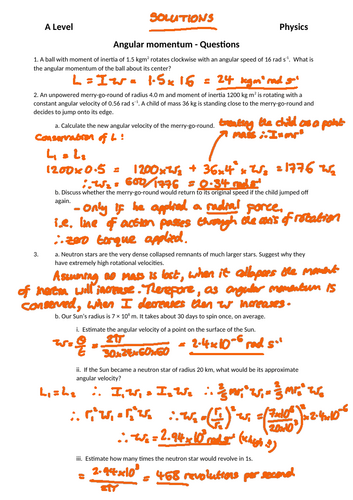 SOLUTIONS
A Level
Physics
Angular momentum - Questions
1. A ball with moment of inertia of 1.5 kgm² rotates clockwise with an angular speed of 16 rad s⁻¹. What is
the angular momentum of the ball about its center?
L = Iω = 1.5 × 16 = 24 kgm² rad s⁻¹
2. An unpowered merry-go-round of radius 4.0 m and moment of inertia 1200 kg m² is rotating with a
constant angular velocity of 0.56 rad s⁻¹. A child of mass 36 kg is standing close to the merry-go-round and
decides to jump onto its edge.
a. Calculate the new angular velocity of the merry-go-round.
treating the child as a point
mass ∴ I=mr²
Conservation of L!
L₁ = L₂
1200×0.5 = 1200×ω₂ + 36×4²×ω₂ = 1776 ω₂
∴ ω₂ = 600/1776 = 0.34 rad s⁻¹
b. Discuss whether the merry-go-round would return to its original speed if the child jumped off
again.
- only if be applied a radial force.
i.e. line of action passes through the axis of rotation
∴ zero torque applied.
3. a. Neutron stars are the very dense collapsed remnants of much larger stars. Suggest why they
have extremely high rotational velocities.
Assuming no mass is lost, when it collapses the moment
of inertia will increase. Therefore, as angular momentum is
conserved, when I decreases then ω increases.
b. Our Sun's radius is 7 × 10⁸ m. It takes about 30 days to spin once, on average.
i. Estimate the angular velocity of a point on the surface of the Sun.
ω = θ/t = 2π/30×24×60×60 = 2.4×10⁻⁶ rad s⁻¹
ii. If the Sun became a neutron star of radius 20 km, what would be its approximate
angular velocity?
L₁ = L₂ ∴ I₁ω₁ = I₂ω₂ ∴ 2/5 mr₁² ω₁ = 2/5 mr₂² ω₂
∴ r₁²ω₁ = r₂²ω₂ ∴ ω₂ = (r₁/r₂)² ω₁ = (7×10⁸/20×10³)² × 2.4×10⁻⁶
∴ ω₂ = 2.94×10³ rad s⁻¹ (high!)
iii. Estimate how many times the neutron star would revolve in 1s.
= 2.94×10³/2π = 468 revolutions per second